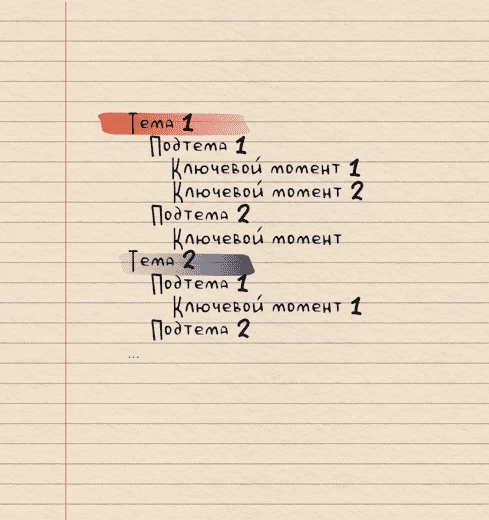 Тема 1
Подтема 1
Ключевой момент 1
Ключевой момент 2
Подтема 2
Ключевой момент
Тема 2
Подтема 1
Ключевой момент 1
Подтема 2
...